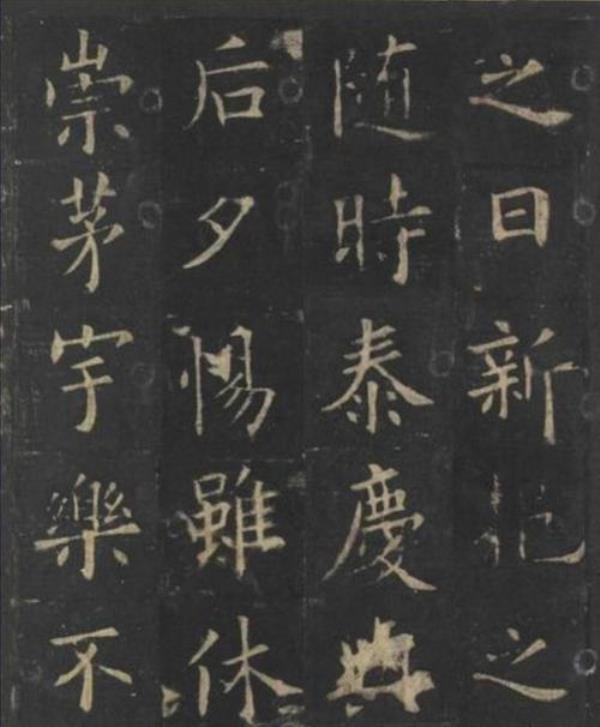 之日新之
随時泰慶
后夕惕雖休
崇茅宇樂不